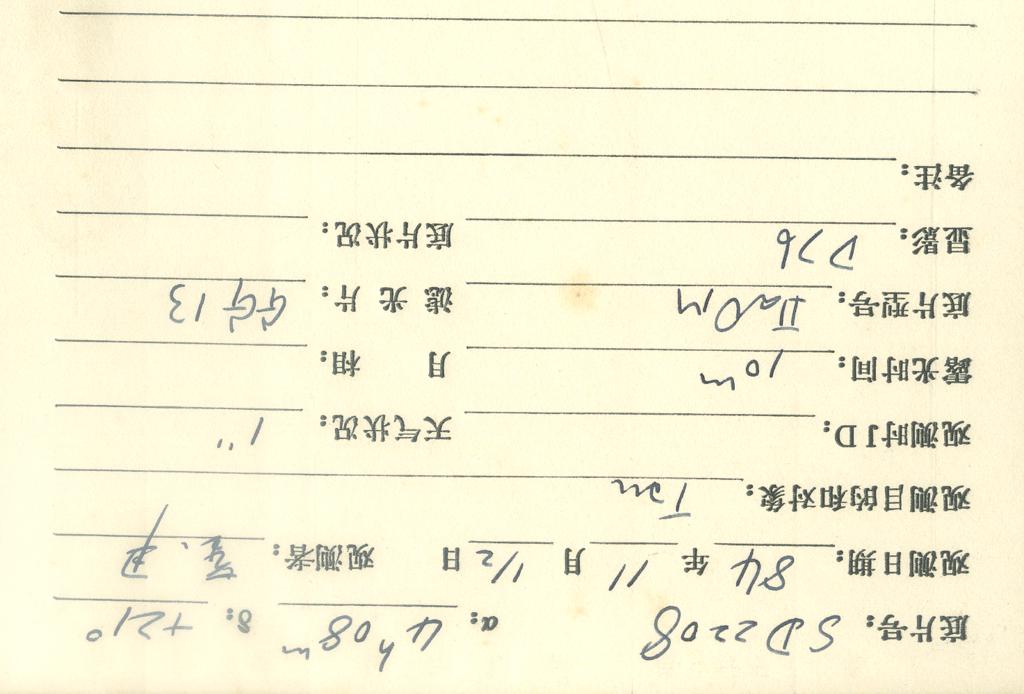 底片号: SD2208 α: 4ʰ08ᵐ δ: +21°
观测日期: 84 年 11 月 1/2 日 观测者:
观测目的和对象: Tau
观测时JD: 天气状况: 1"
露光时间: 10ᵐ 月 相:
底片型号: IIaO 滤光片: GG13
显影: D76 底片状况:
备注: